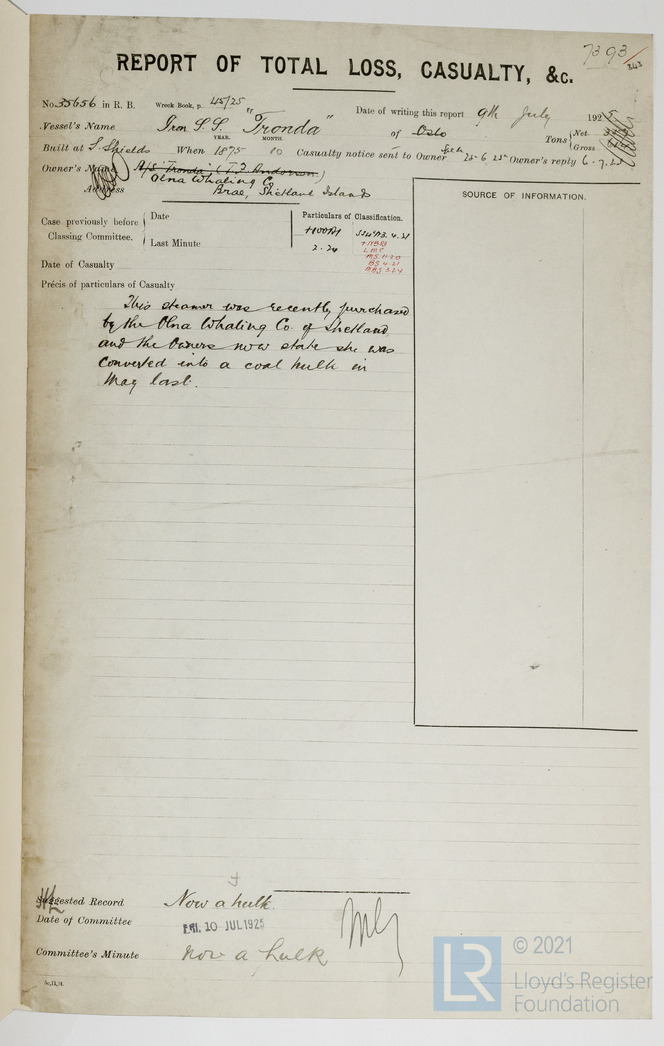 7393/
343
REPORT OF TOTAL LOSS, CASUALTY, &c.
No. 35656 in R. B. Wreck Book, p. 45/25
Date of writing this report 9th July 1925
Vessel's Name Iron S.S. "Tronda" of Oslo Tons { Net Gross
YEAR. MONTH.
Built at S. Shields When 1875 10 Casualty notice sent to Owner 25-6-25 Owner's reply 6-7-25
Owner's Name A/S "Tronda" (T. F. Anderson)
Olna Whaling Co.
Address Brae, Shetland Islands
SOURCE OF INFORMATION.
Case previously before Classing Committee. { Date
Last Minute
Particulars of Classification.
+100A1
2.24
LMC
BS 4.21
Date of Casualty
Précis of particulars of Casualty
This steamer was recently purchased
by the Olna Whaling Co. of Shetland
and the Owners now state she was
converted into a coal hulk in
May last.
Suggested Record Now a hulk.
Date of Committee FRI. 10 JUL 1925
Committee's Minute Now a hulk
© 2021
LR
Lloyd's Register
Foundation